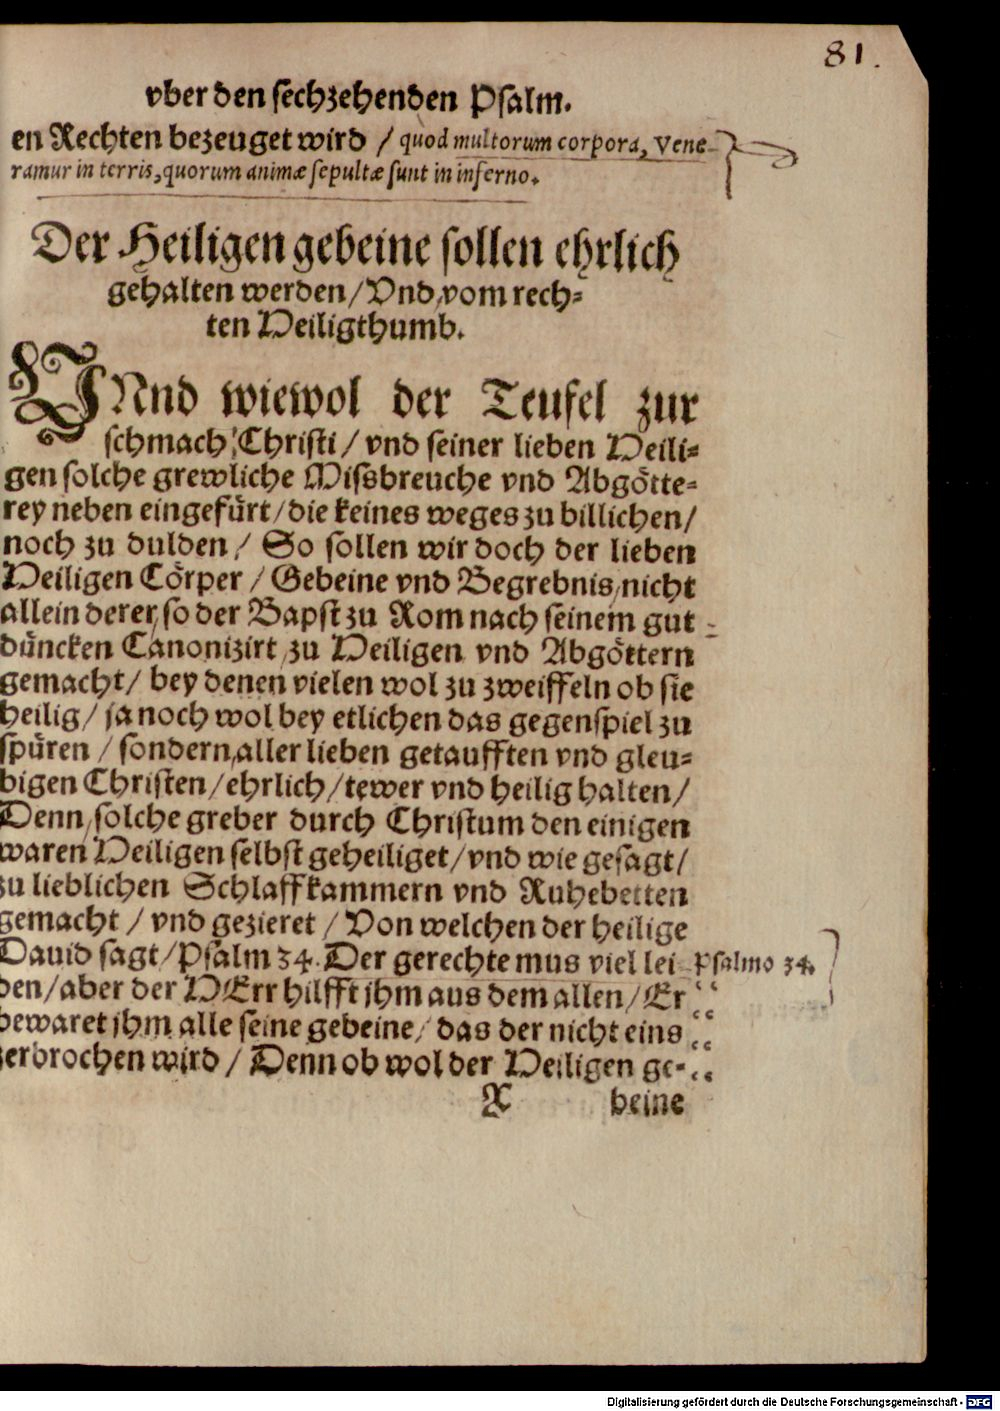 81.
vber den sechzehenden Psalm.
en Rechten bezeuget wird / quod multorum corpora, Vene-
ramur in terris, quorum animæ sepultæ sunt in inferno.
Der Heiligen gebeine sollen ehrlich
gehalten werden / Vnd vom rech-
ten Heiligthumb.
VNnd wiewol der Teufel zur
schmach Christi / vnd seiner lieben Heili-
gen solche grewliche Missbreuche vnd Abgötte-
rey neben eingefürt / die keines weges zu billichen /
noch zu dulden / So sollen wir doch der lieben
Heiligen Cörper / Gebeine vnd Begrebnis / nicht
allein derer / so der Bapst zu Rom nach seinem gut
düncken Canonizirt / zu Heiligen vnd Abgöttern
gemacht / bey denen vielen wol zu zweiffeln ob sie
heilig / ja noch wol bey etlichen das gegenspiel zu
spüren / sondern aller lieben getaufften vnd gleu-
bigen Christen / ehrlich / tewer vnd heilig halten /
Denn solche greber durch Christum den einigen
waren Heiligen selbst geheiliget / vnd wie gesagt /
zu lieblichen Schlaffkammern vnd Ruhebetten
gemacht / vnd gezieret / Von welchen der heilige
Dauid sagt / Psalm 34. Der gerechte mus viel lei- Psalmo 34.
den / aber der HErr hilfft jhm aus dem allen / Er
bewaret jhm alle seine gebeine / das der nicht eins
zerbrochen wird / Denn ob wol der Heiligen ge-
X beine
Digitalisierung gefördert durch die Deutsche Forschungsgemeinschaft - DFG